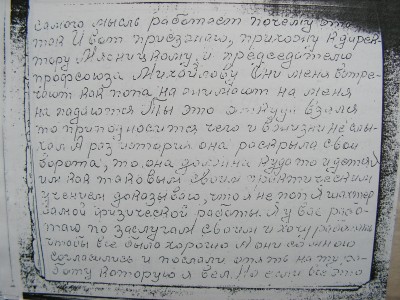 самого мысль работает почему это
так И вот приезжаю, прихожу к дирек
тору Мясницкому, и председателю
профсоюза Михайлову они меня встре-
чают как попа на снимают на меня
нападаются Ты это откуда взялся
то приподносится чего и в жизни не слы-
хал А раз история она раскрыла свои
ворота, то она должна куда то идетка
им как таковым своим практическим
учением доказываю, что я не поп Я шахтер
самой физической работы. Я у вас рабо-
таю по заслугам своим и хочу работать
чтобы все было хорошо И они со мною
согласились и послали опять на ту ра-
боту которую я вел. На если все это